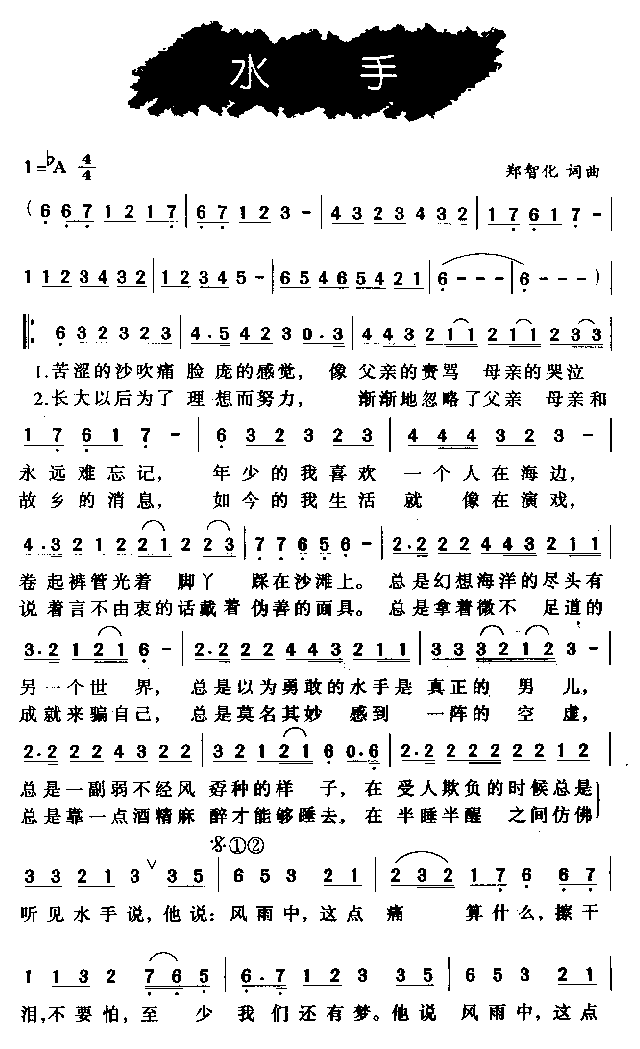 水 手
1=♭A 4/4 郑智化 词曲
(6 6 7 1 2 1 7 | 6 7 1 2 3 - | 4 3 2 3 4 3 2 | 1 7 6 1 7 - |
1 1 2 3 4 3 2 | 1 2 3 4 5 - | 6 5 4 6 5 4 2 1 | 6 - - - | 6 - - ) |
‖: 6 3 2 3 2 3 | 4 . 5 4 2 3 0 . 3 | 4 4 3 2 1 1 2 1 1 2 3 3 |
1.苦涩的沙吹痛 脸 庞的感觉, 像 父亲的责骂 母亲的哭泣
2.长大以后为了 理 想而努力, 渐渐地忽略了父亲 母亲和
1 7 6 1 7 - | 6 3 2 3 2 3 | 4 4 4 3 2 1 - |
永 远 难 忘 记, 年 少 的 我 喜 欢 一 个 人 在 海 边,
故 乡 的 消 息, 如 今 的 我 生 活 就 像 在 演 戏,
4 . 3 2 1 2 2 1 2 2 3 | 7 7 6 5 6 - | 2 . 2 2 2 4 4 3 2 1 1 |
卷 起 裤 管 光 着 脚 丫 踩 在 沙 滩 上。 总 是 幻 想 海 洋 的 尽 头 有
说 着 言 不 由 衷 的 话 戴 着 伪 善 的 面 具。 总 是 拿 着 微 不 足 道 的
3 . 2 1 2 1 6 - | 2 . 2 2 2 4 4 3 2 1 1 | 3 3 3 2 1 2 3 - |
另 一 个 世 界, 总 是 以 为 勇 敢 的 水 手 是 真 正 的 男 儿,
成 就 来 骗 自 己, 总 是 莫 名 其 妙 感 到 一 阵 的 空 虚,
2 . 2 2 2 4 3 2 2 | 3 2 1 2 1 6 0 . 6 | 2 . 2 2 2 2 2 2 1 2 |
总 是 一 副 弱 不 经 风 孬 种 的 样 子, 在 受 人 欺 负 的 时 候 总 是
总 是 靠 一 点 酒 精 麻 醉 才 能 够 睡 去, 在 半 睡 半 醒 之 间 仿 佛
𝄋①②
3 3 2 1 3 ∨ 3 5 | 6 5 3 2 1 | 2 3 2 1 7 6 6 7 |
听 见 水 手 说, 他 说: 风 雨 中, 这 点 痛 算 什 么, 擦 干
1 1 3 2 7 6 5 | 6 . 7 1 2 3 3 5 | 6 5 3 2 1 |
泪, 不 要 怕, 至 少 我 们 还 有 梦。 他 说 风 雨 中, 这 点